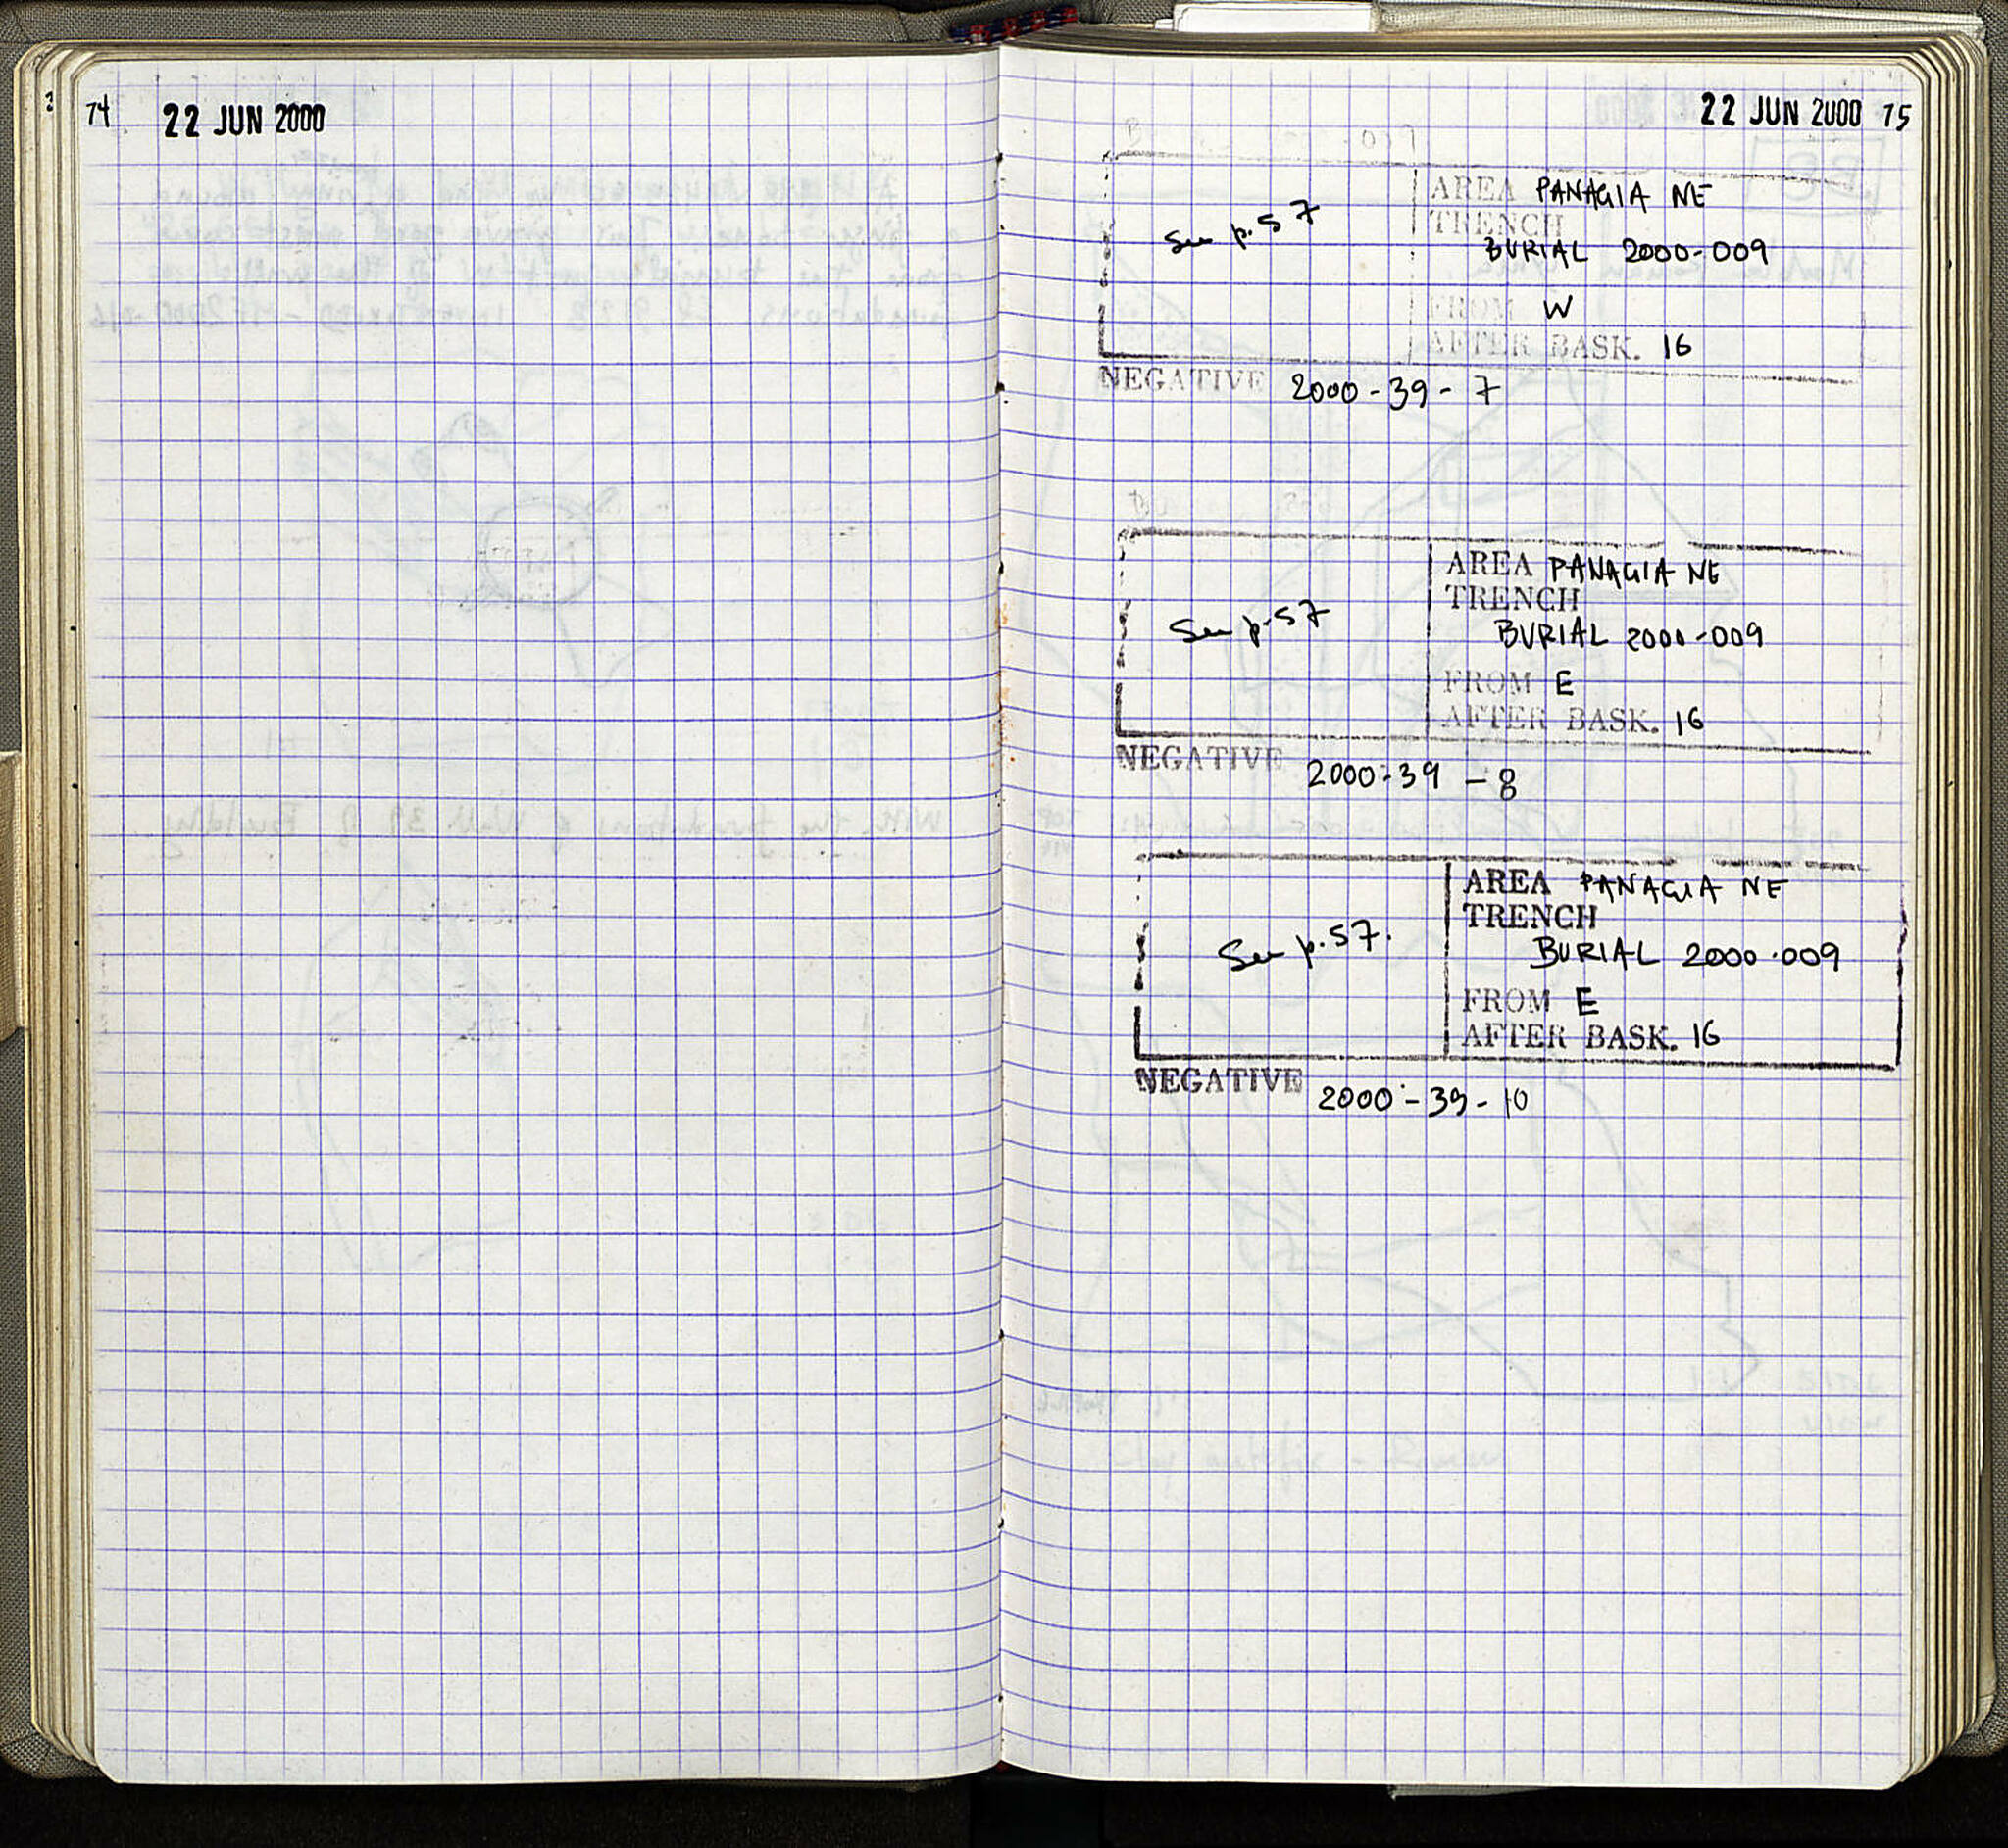 74 22 JUN 2000
22 JUN 2000 75
See p. 57
AREA PANAGIA NE
TRENCH
BURIAL 2000-009
FROM W
AFTER BASK. 16
NEGATIVE 2000-39-7
See p. 57
AREA PANAGIA NE
TRENCH
BURIAL 2000-009
FROM E
AFTER BASK. 16
NEGATIVE 2000-39-8
See p. 57.
AREA PANAGIA NE
TRENCH
BURIAL 2000-009
FROM E
AFTER BASK. 16
NEGATIVE 2000-39-10